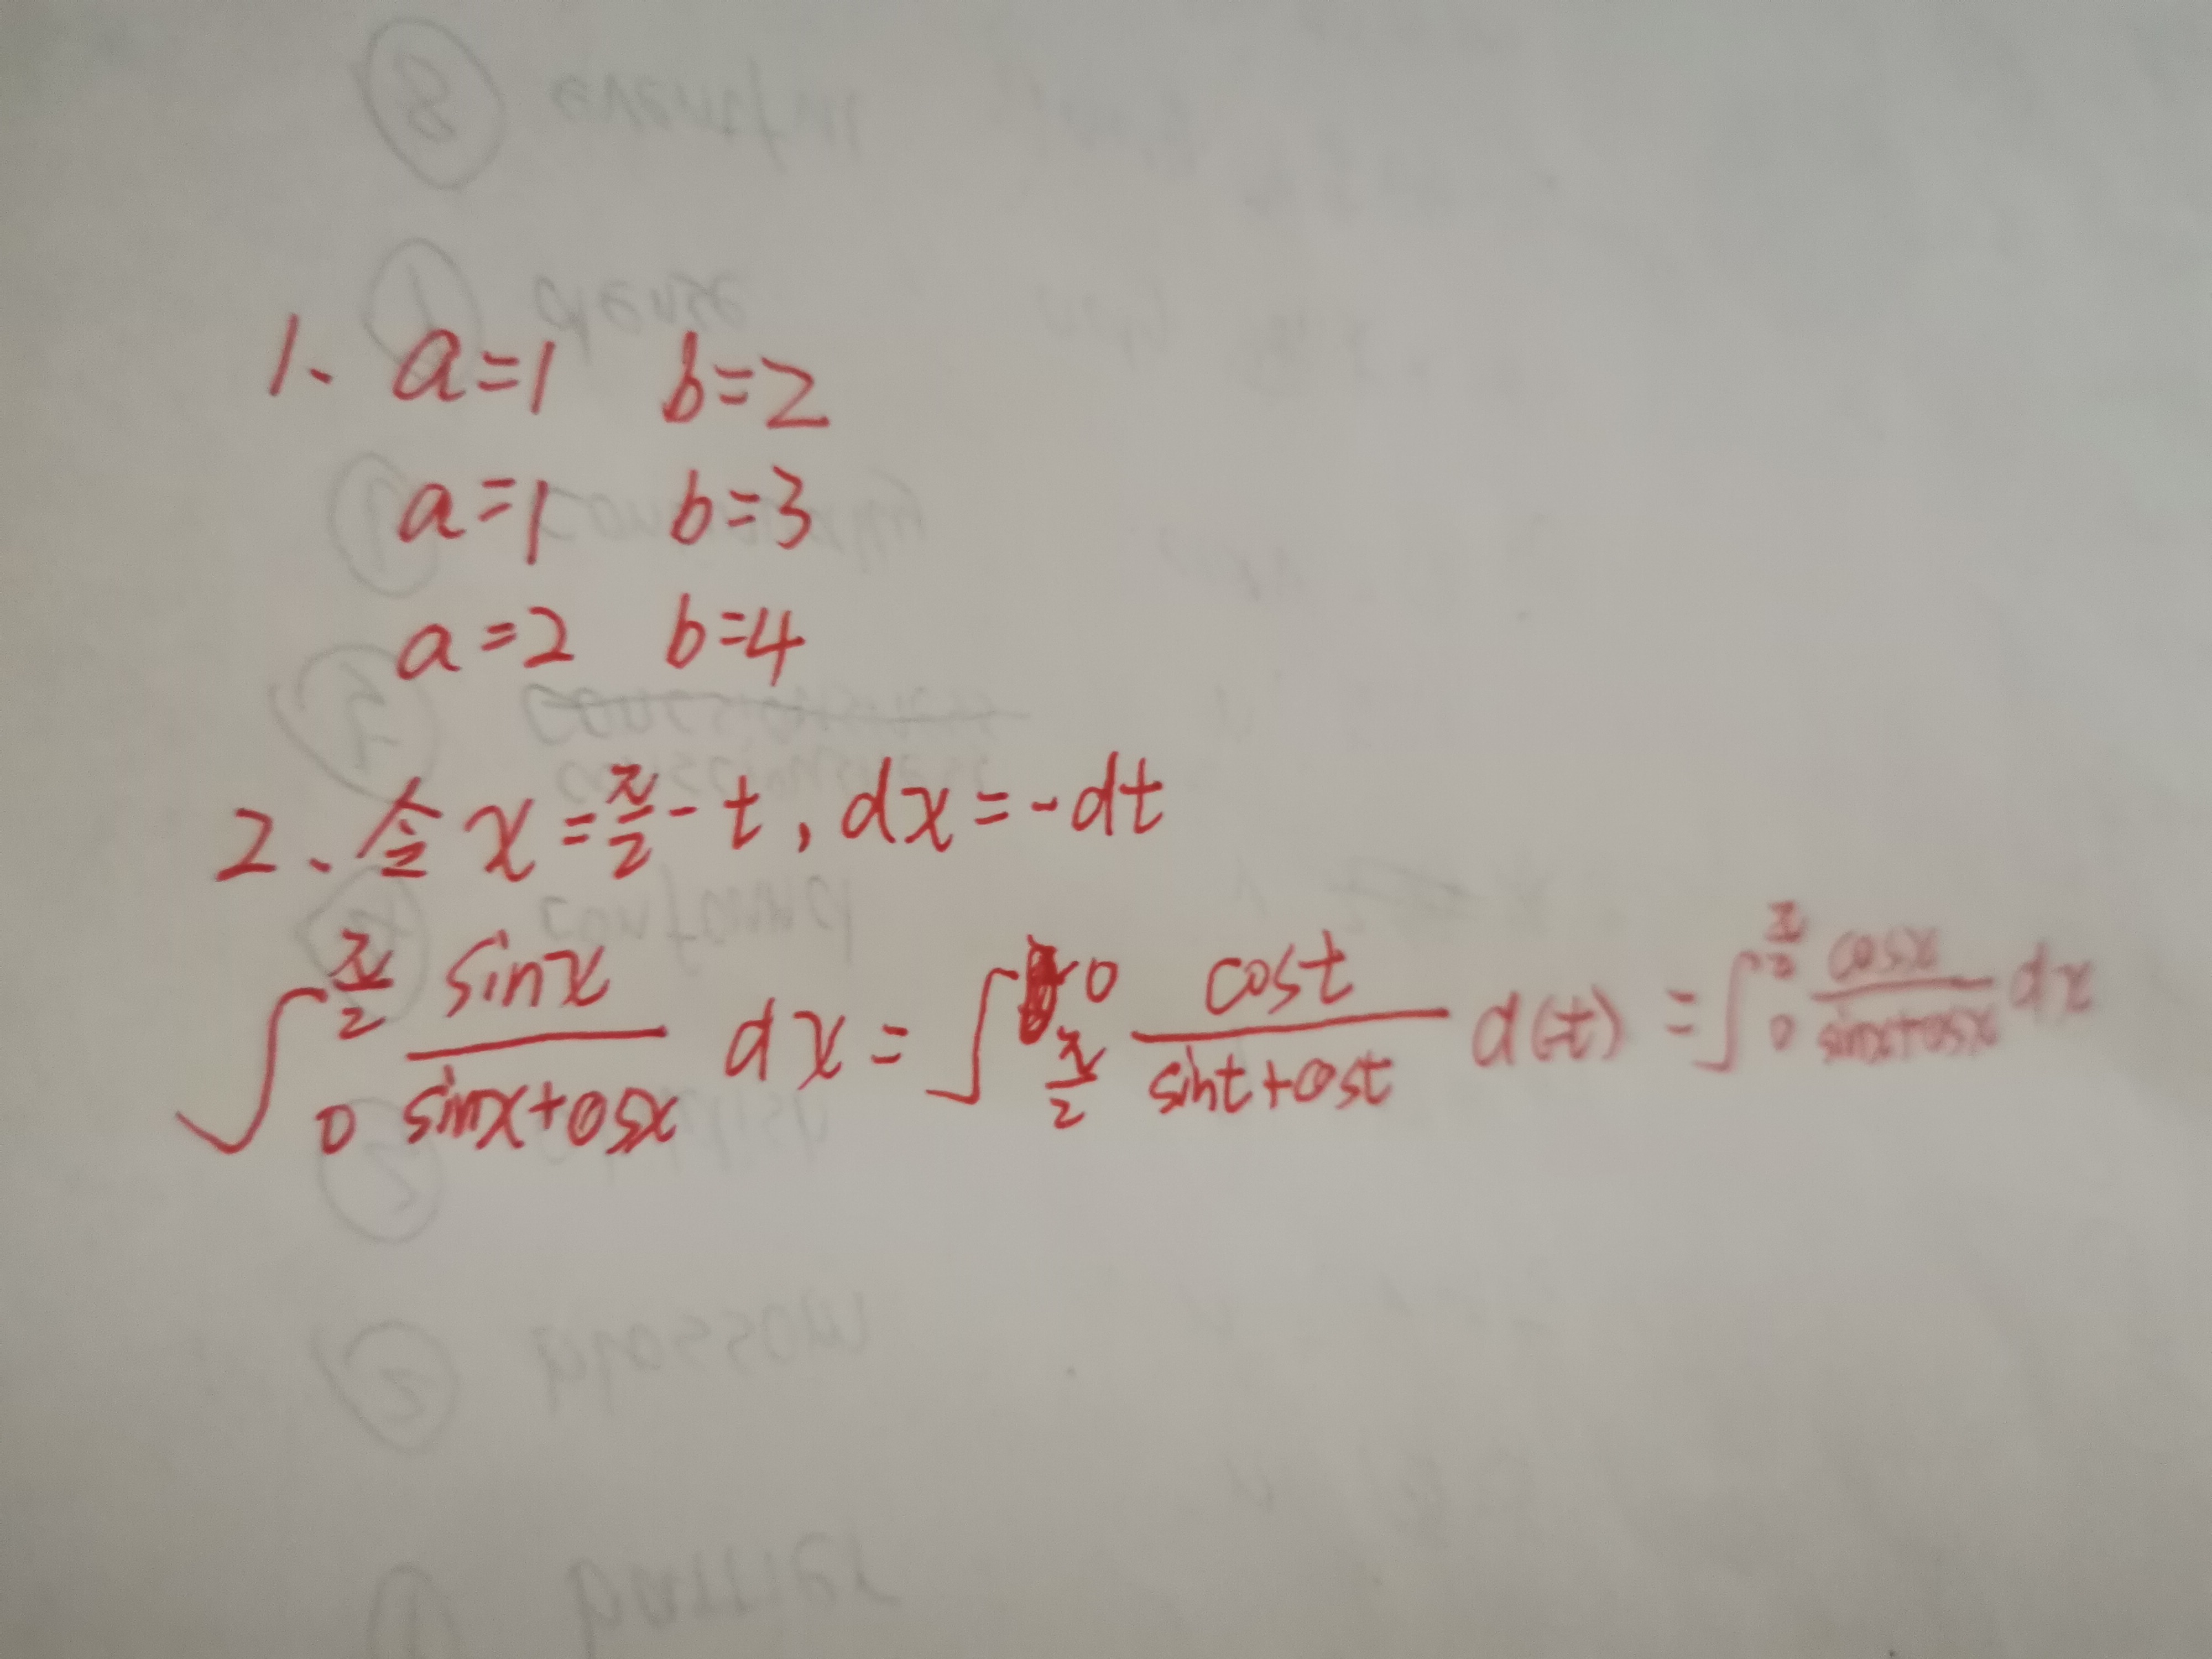 1、a=1 b=2
a=1 b=3
a=2 b=4
2、令x=π/2-t,dx=-dt
∫_0^{π/2} sinx/(sinx+cosx) dx = ∫_{π/2}^0 cost/(sint+cost) d(-t) = ∫_0^{π/2} cosx/(sinx+cosx) dx